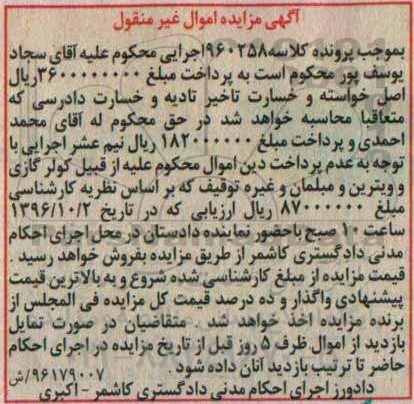 آگهی مزایده اموال غیر منقول
بموجب پرونده کلاسه ۹۶۰۲۵۸اجرایی محکوم علیه آقای سجاد
یوسف پور محکوم است به پرداخت مبلغ ۳۶۰۰۰۰۰۰۰۰ریال
اصل خواسته و خسارت تاخیر تادیه و خسارت دادرسی که
متعاقبا محاسبه خواهد شد در حق محکوم له آقای محمد
احمدی و پرداخت مبلغ ۱۸۲۰۰۰۰۰۰ ریال نیم عشر اجرایی با
توجه به عدم پرداخت دین اموال محکوم علیه از قبیل کولر گازی
و ویترین و مبلمان و غیره توقیف که بر اساس نظریه کارشناسی
مبلغ ۸۷۰۰۰۰۰۰ ریال ارزیابی که در تاریخ ۱۳۹۶/۱۰/۲
ساعت ۱۰ صبح باحضور نماینده دادستان در محل اجرای احکام
مدنی دادگستری کاشمر از طریق مزایده بفروش خواهد رسید .
قیمت مزایده از مبلغ کارشناسی شده شروع و به بالاترین قیمت
پیشنهادی واگذار و ده درصد قیمت کل مزایده فی المجلس از
برنده مزایده اخذ خواهد شد . متقاضیان در صورت تمایل
بازدید از اموال ظرف ۵ روز قبل از تاریخ مزایده در اجرای احکام
حاضر تا ترتیب بازدید آنان داده شود .
۹۶۱۷۹۰۰۷/ش
دادورز اجرای احکام مدنی دادگستری کاشمر - اکبری